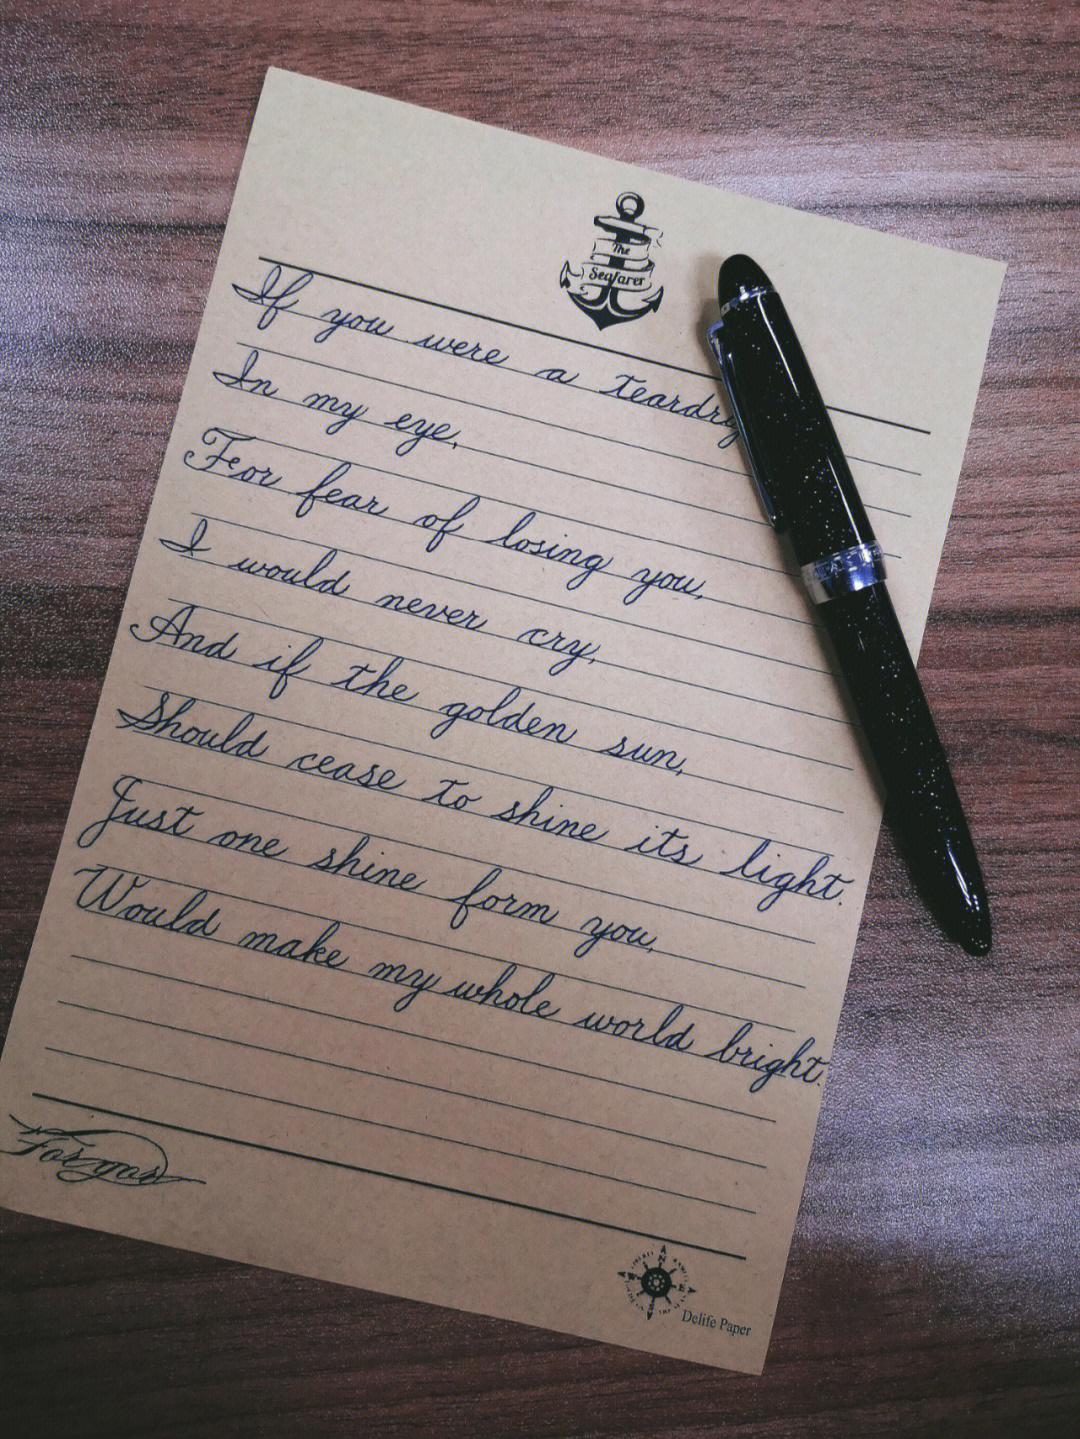 The
Seafarer
If you were a teardr
In my eye,
For fear of losing you,
I would never cry,
And if the golden sun,
Should cease to shine its light.
Just one shine form you,
Would make my whole world bright.
For you
Delife Paper